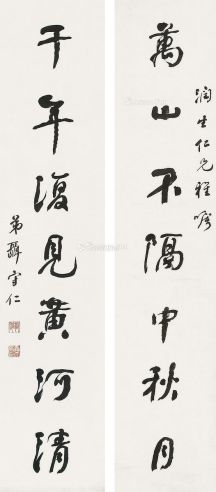 萬山不隔中秋月
潤生仁兄雅囑
千年復見黄河清
弟聶守仁